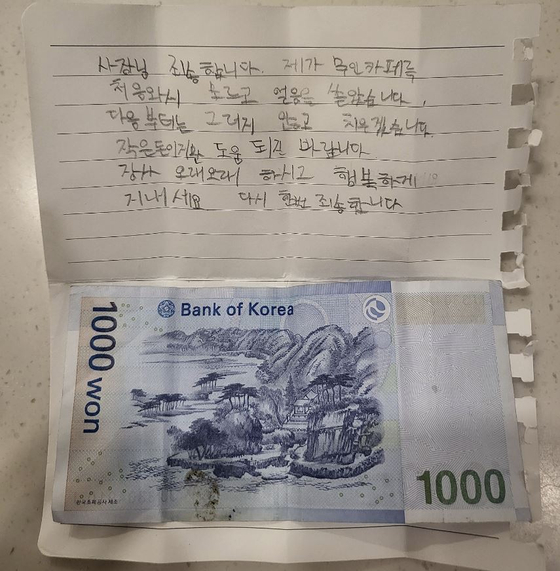 사장님 죄송합니다. 제가 무인카페를
처음와서 모르고 얼음을 쏟았습니다.
다음부터는 그러지 안고 치우겠습니다
작은돈이지만 도움 되길 바랍니다
장사 오래오래 하시고 행복하게
지내세요 다시 한번 죄송합니다
Bank of Korea
1000 won
1000
한국조폐공사 제조